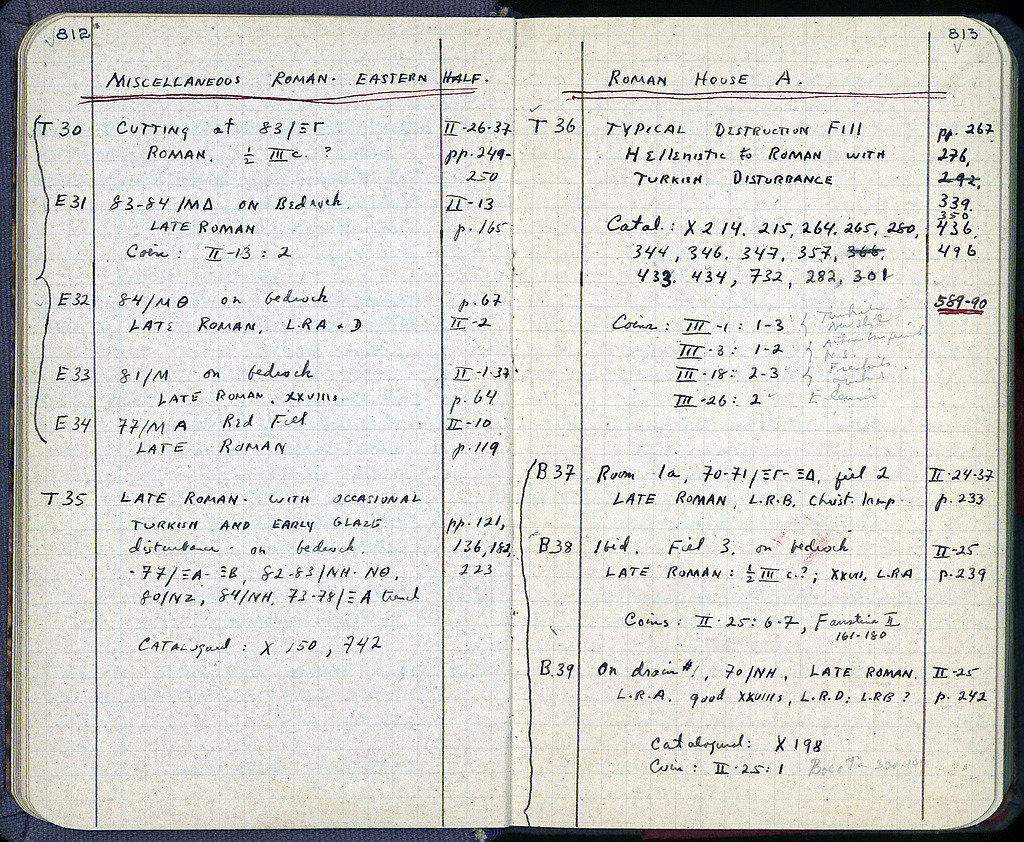 812
MISCELLANEOUS ROMAN. EASTERN HALF.
T 30 CUTTING at 83/ΞΓ II-26-37
ROMAN. ½ III c. ? pp. 249-
250
E31 83-84/MΔ ON Bedrock. II-13
LATE ROMAN p. 165
Coin: II-13: 2
E32 84/MΘ on bedrock p. 67
LATE ROMAN, L.R.A + D II-2
E33 81/M on bedrock II-1-37
LATE ROMAN, XXVIIIs. p. 64
E34 77/MA Red Fill II-10
LATE ROMAN p. 119
T 35 LATE ROMAN. WITH OCCASIONAL
TURKISH AND EARLY GLAZE pp. 121,
disturbance. on bedrock. 136, 182,
-77/ΞA-ΞB, 82-83/NH-NΘ, 223
80/NZ, 84/NH, 73-78/ΞA trench
CATALogued: X 150, 742
813
ROMAN HOUSE A.
T 36 TYPICAL DESTRUCTION FIll pp. 267
HEllENistic to ROMAN WITH 276,
TURKISH DISTURBANCE 292,
339,
350
Catal.: X 214, 215, 264, 265, 280, 436,
344, 346, 347, 357, 366, 496
433, 434, 732, 282, 301
589-90
Coins: III-1: 1-3 Turkish
III-3: 1-2
N.S.
III-18: 2-3
III-26: 2
B 37 Room 1a, 70-71/ΞΓ-ΞΔ, fill 2 II-24-37
LATE ROMAN, L.R.B, Christ. lamp. p. 233
B.38 Ibid. Fill 3, on bedrock II-25
LATE ROMAN: ½ III c.?; XXVII, L.R.A p. 239
Coins: II-25: 6-7, Faustina II
161-180
B.39 On drain #1, 70/NH, LATE ROMAN. II-25
L.R.A, good XXVIIIs, L.R.D: L.R.B? p. 242
Catalogued: X 198
Coin: II-25: 1